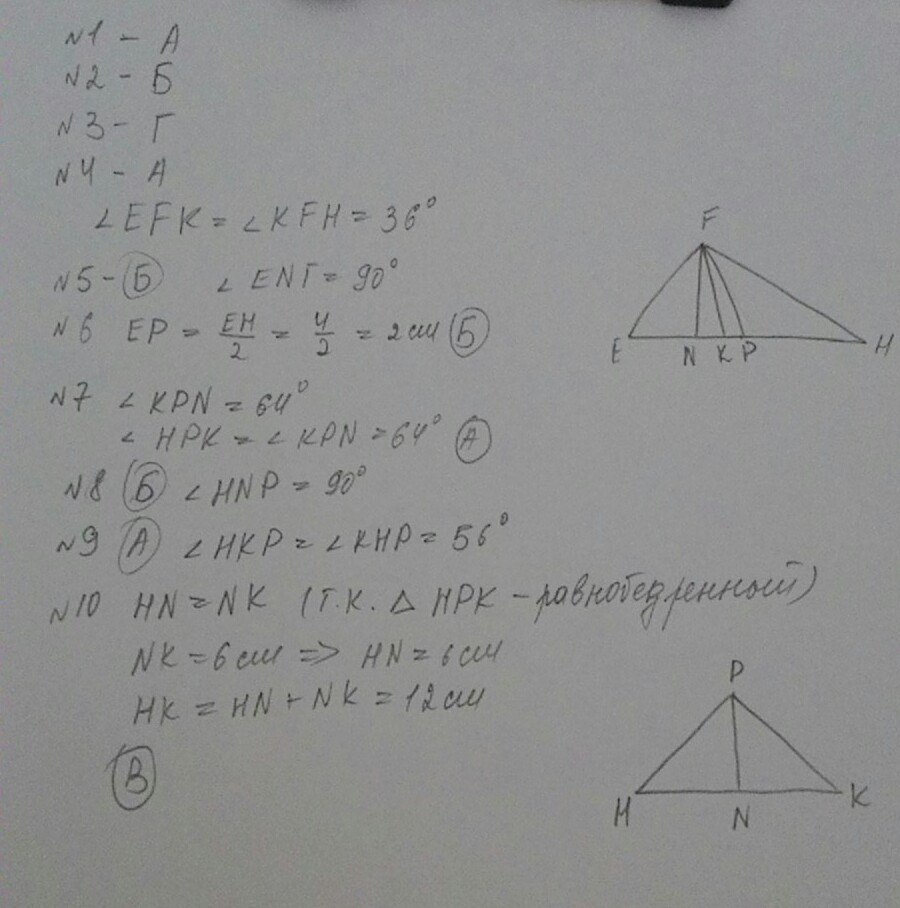 №1 - А
№2 - Б
№3 - Г
№4 - А
∠EFK = ∠KFH = 36°
№5 - Б ∠ENF = 90°
№6 EP = EH/2 = 4/2 = 2см Б
№7 ∠KPN = 64°
∠HPK = ∠KPN = 64° А
№8 Б ∠HNP = 90°
№9 А ∠HKP = ∠KHP = 56°
№10 HN = NK (т.к. △ HPK - равнобедренный)
NK = 6см => HN = 6см
HK = HN + NK = 12см
В
F
E N K P H
P
H N K